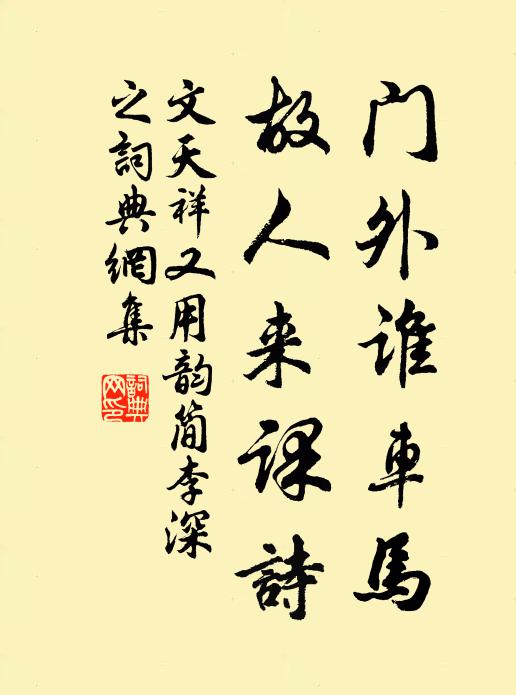 门外谁車馬
故人来课詩
文天祥又用韵简李深
之詞典網集
詞典網印